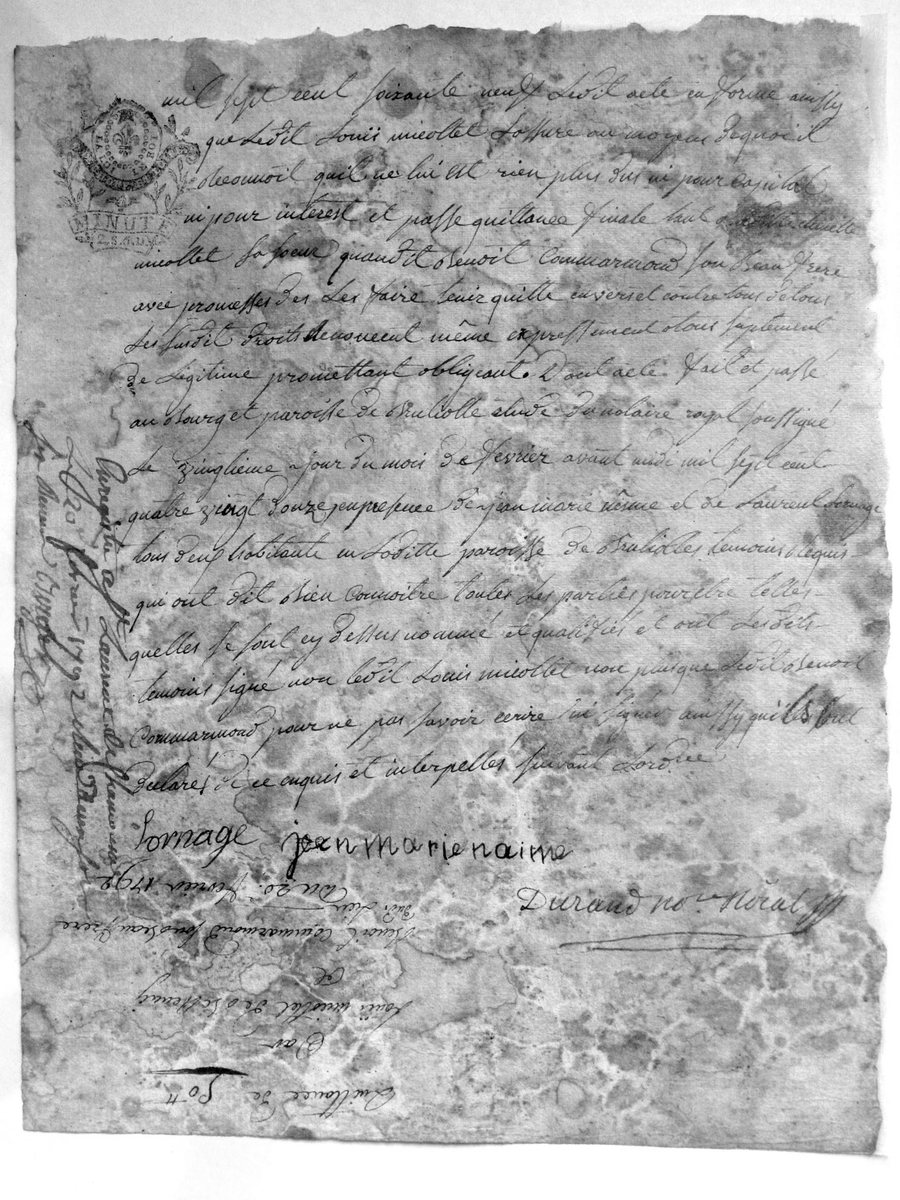 mil sept cent soixante neuf Ledit acte en forme aussy
que Ledit Louis micollet Lassure au moyens dequoi il
reconnoit quil ne lui est rien plus du ni pour capital
ni pour interest et passe quittance finale tant
micollet Sa soeur quaudit Benoit Commarmond Son Beau frere
avec promesses des Les faire tenir quitte envers et contre tous de tous
Les susdit droits Renoncent même expressement a tous suplement
de Légitime promettant obligeant. Dont acte fait et passé
au Bourg et paroisse de Brulliolle étude du notaire royal soussigné
Le vingtième jour du mois de fevrier avant midi mil sept cent
quatre vingt douze, en presence de jean marie néime et de Laurent Lornage
tous deux habitants en Laditte paroisse de Brulioles temoins requis
qui ont dit Bien Connoitre toutes Les parties pour être telles
quelles se sont cy dessus nommé et qualifiés et ont Lesdits
temoins signé non Ledit Louis micollet non plus que Ledit Benoit
Commarmond pour ne pas savoir écrire ni signer aussy quils Lont
Déclarés de ce enquis et interpellés suivant Lord.ce
Lornage jean marie naime
Durand no.re Royal
MINUTE
Enregistré a St Laurent de Chamousset
Le 20 fevrier 1792
Quittance de
50 tt
Par
Louis micollet de
A
Benoit Commarmond Son Beau frere
Du 20. fevrier 1792